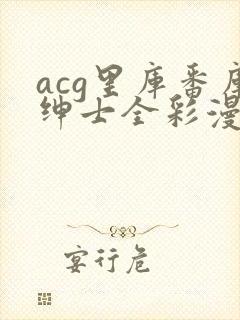 acg里库番库
绅士全彩漫
宴行危